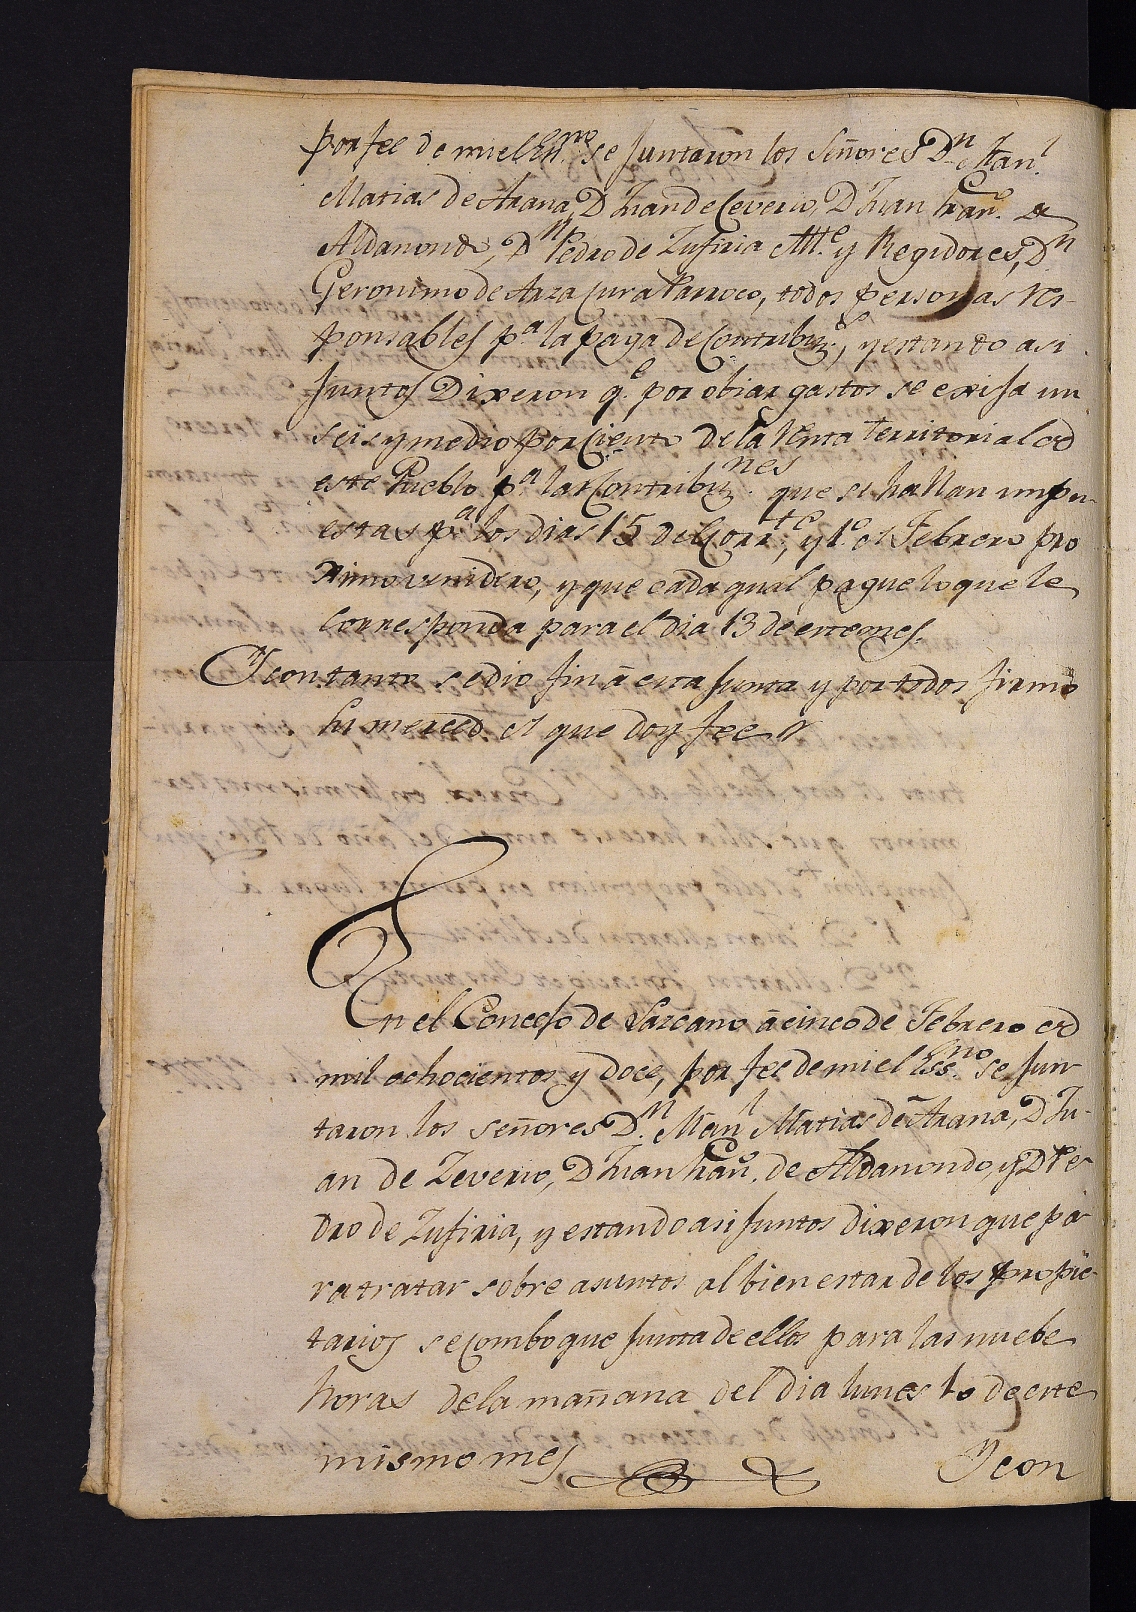 por fee de mi el Ess.no se juntaron los Señores D.n Man.l
Matias de Arana, D Juan de Ceverio, D Juan Fran.co de
Aldanondo, D.n Pedro de Zufiria Alt.e y Regidores, D.n
Geronimo de Arza Cura Parroco, todos personas res-
ponsables p.a la paga de Contribuz.s, y estando asi
juntos Dixeron q.e por obiar gastos se exija un
seis y medio por Ciento de la renta territorial de
este Pueblo p.a las Contribuz.nes que se hallan impu-
estas p.a los dias 15 del Corr.te, y 1.o de Febrero pro
ximo venidero, y que cada qual pague lo que le
corresponda para el dia 13 de este mes.
Y con tanto se dio fin â esta junta y por todos firmó
su merced de que doy fee
En el Concejo de Lazcano â cinco de Febrero de
mil ochocientos y doce, por fee de mi el Ess.no se jun-
taron los señores D.n Man.l Matias de Arana, D Ju-
an de Zeverio, D Juan Fran.co de Aldanondo, y D Pe-
dro de Zufiria, y estando asi juntos dixeron que pa-
ra tratar sobre asuntos al bien estar de los propie-
tarios se comboque junta de ellos para las nuebe
horas de la mañana del dia lunes 10 de este
mismo mes
Y con